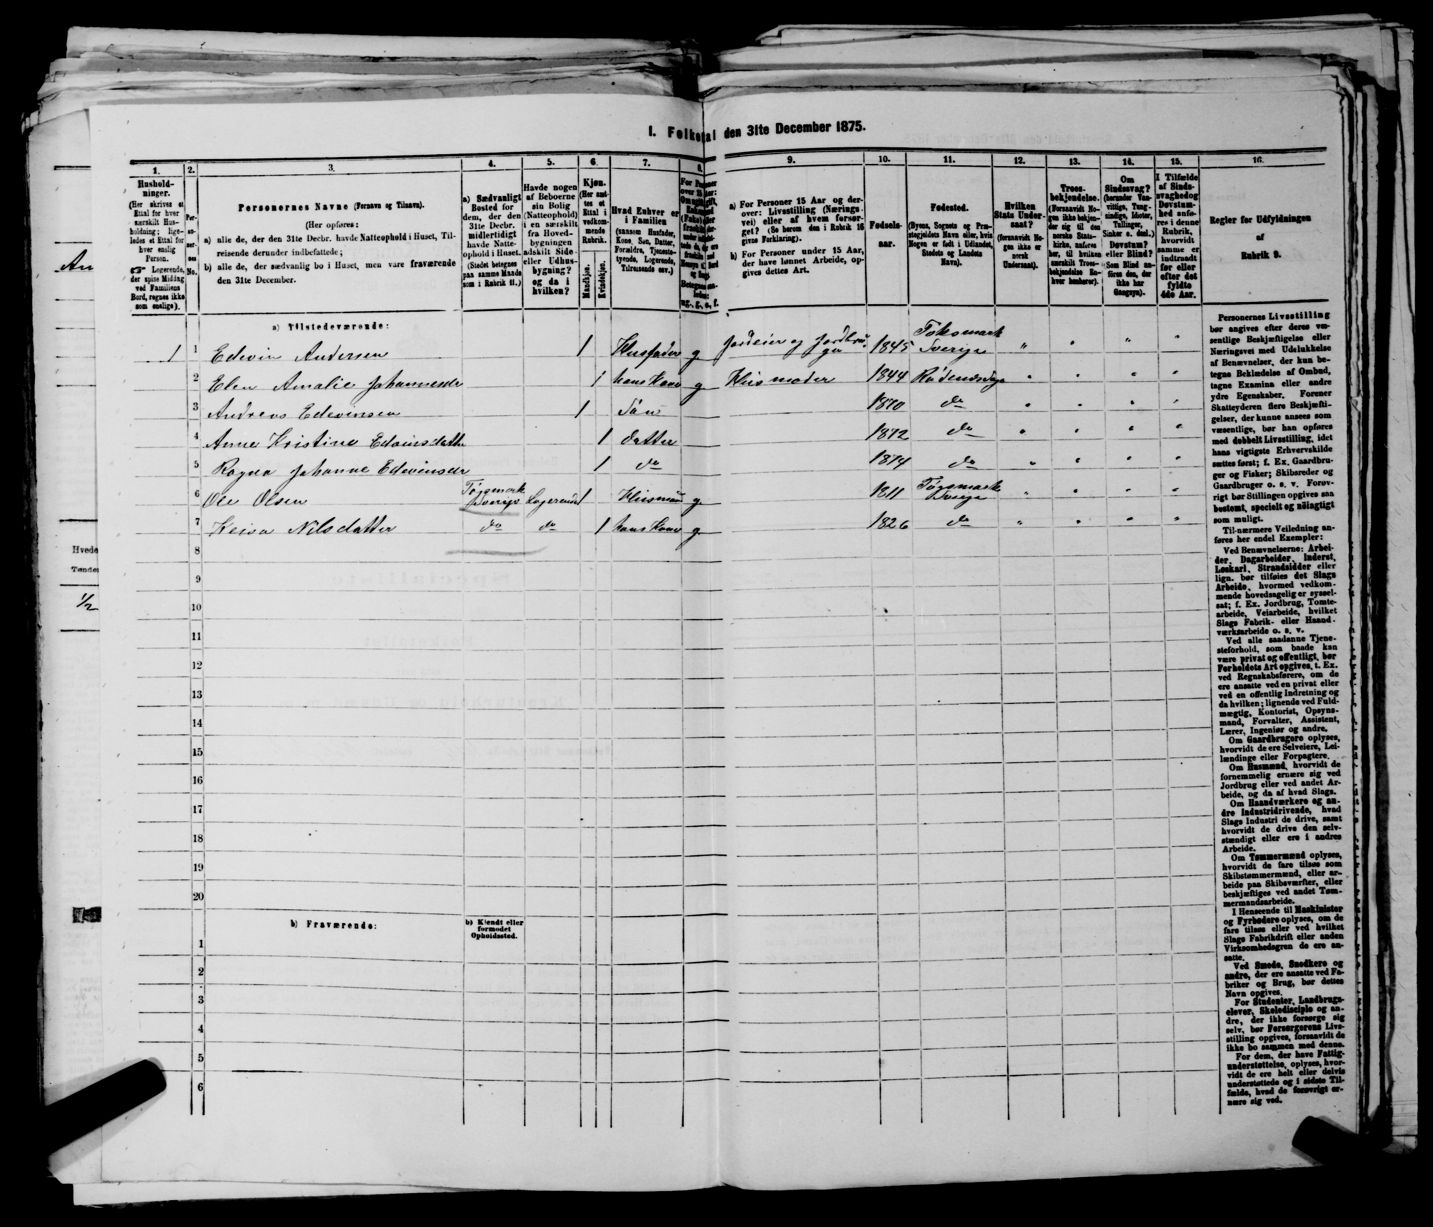 I. Folketal den 31te December 1875.
1.
Hushold-
ninger.
(Her skrives et
Ettal for hver
særskilt Hus-
holdning; lige-
ledes et Ettal for
hver enslig
Person.
☞ Logerende,
der spise Middag
ved Familiens
Bord, regnes ikke
som enslige).
2.
No.
3.
Personernes Navne (Fornavn og Tilnavn).
(Her opføres:
a) alle de, der den 31te Decbr. havde Natteophold i Huset, Til-
reisende derunder indbefattede;
b) alle de, der sædvanlig bo i Huset, men vare fraværende
den 31te December.
4.
a) Sædvanligt
Bosted for
dem, der den
31te Decbr.
midlertidigt
havde Natte-
ophold i Huset.
(Stedet betegnes
paa samme Maade
som i Rubrik 11.)
5.
Havde nogen
af Beboerne
sin Bolig
(Natteophold)
i en særskilt
fra Hoved-
bygningen
adskilt Side-
eller Udhus-
bygning?
og da i
hvilken?
6.
Kjøn.
(Her sæt-
tes et
Ettal i
vedkom-
mende
Rubrik.
Mandkjøn.
Kvindekjøn.
7.
Hvad Enhver er
i Familien
(saasom Husfader,
Kone, Søn, Datter,
Forældre, Tjeneste-
tyende, Logerende,
Tilreisende osv.)
8.
9.
a) For Personer 15 Aar og der-
over: Livsstilling (Nærings-
vei) eller af hvem forsør-
get? (Se herom den i Rubrik 16
givne Forklaring).
b) For Personer under 15 Aar,
der have lønnet Arbeide, op-
gives dettes Art.
10.
Fødsels-
aar.
11.
Fødested.
(Byens, Sognets og Præ-
stegjeldets Navn eller, hvis
Nogen er født i Udlandet,
Stedets og Landets
Navn).
12.
Hvilken
Stats Under-
saat?
(forsaavidt No-
gen ikke er
norsk
Undersaat).
13.
Troes-
bekjendelse.
(Forsaavidt No-
gen ikke bekjen-
der sig til den
norske Stats-
kirke, anføres
her, til hvilken
særskilt Troes-
bekjendelse Ra-
ver henhører).
14.
Om
Sindssvag?
(herunder Van-
vittige, Tung-
sindige, Idioter,
Tullinger,
Sinker o. desl.).
Døvstum?
eller Blind?
Som Blind an-
føres den, der
ikke har
Gangsyn).
15.
I Tilfælde
af Sinds-
svaghed og
Døvstum-
hed anfø-
res i denne
Rubrik,
hvorvidt
samme er
indtraadt
før eller
efter det
fyldte
4de Aar.
16.
Regler for Udfyldningen
af
Rubrik 9.
a) Tilstedeværende:
1 1 Edevin Andersen 1 Husfader g Jordeier og Jordbru-
ger 1845 Töksmark
Sverige " " " "
2 Elen Amalie Johannesdr 1 hans Kone g Husmoder 1844 Rødenæs " " " "
3 Andreas Edevinsen 1 Søn 1870 do " " " "
4 Anne Kristine Edvinsdatter 1 datter 1872 do " " " "
5 Ragna Johanne Edevinsdr 1 do 1874 do " " " "
6 Ole Olsen Tøgsmark
Sverige Logerende 1 Husmand g 1811 Tøgsmark
Sverige " " " "
7 Nilsdatter do do 1 hans Kone g 1826 do " " " "
8
9
10
11
12
13
14
15
16
17
18
19
20
b) Fraværende:
b) Kjendt eller
formodet
Opholdssted.
1
2
3
4
5
6
Personernes Livsstilling
bør angives efter deres væ-
sentlige Beskjæftigelse eller
Næringsvei med Udelukkelse
af Benævnelser, der kun be-
tegne Beklædelse af Ombud,
tagne Examina eller andre
ydre Egenskaber. Forener
Skatteyderen flere Beskjæfti-
gelser, der kunne ansees som
væsentlige, bør han opføres
med dobbelt Livsstilling, idet
hans vigtigste Erhvervskilde
sættes først; f. Ex. Gaardbru-
ger og Fisker; Skibsreder og
Gaardbruger o. s. v. Forøv-
rigt bør Stillingen opgives saa
bestemt, specielt og nöiagtigt
som muligt.
Til nærmere Veiledning an-
føres her endel Exempler:
Ved Benævnelserne: Arbei-
der, Dagarbeider, Inderst,
Løskarl, Strandsidder eller
lign. bør tilføies det Slags
Arbeide, hvormed vedkom-
mende hovedsagelig er syssel-
sat; f. Ex. Jordbrug, Tomte-
arbeide, Veiarbeide, hvilket
Slags Fabrik- eller Haand-
værksarbeide o. s. v.
Ved alle saadanne Tjene-
steforhold, som baade kan
være privat og offentligt, bør
Forholdets Art opgives, t. Ex.
ved Regnskabsførere, om de
ere ansatte ved en privat eller
ved en offentlig Indretning og
da hvilken; lignende ved Fuld-
mægtig, Kontorist, Opsyns-
mand, Forvalter, Assistent,
Lærer, Ingeniør og andre.
Om Gaardbrugere oplyses,
hvorvidt de ere Selveiere, Lei-
lændinge eller Forpagtere.
Om Husmænd, hvorvidt de
fornemmelig ernære sig ved
Jordbrug eller ved andet Ar-
beide, og da af hvad Slags.
Om Haandværkere og an-
dre Industridrivende, hvad
Slags Industri de drive, samt
hvorvidt de drive den selv-
stændigt eller ere i andres
Arbeide.
Om Tømmermænd oplyses,
hvorvidt de fare tilsøs som
Skibstømmermænd, eller ar-
beide paa Skibsværfter, eller
beskjæftiges ved andet Tøm-
mermandsarbeide.
I Henseende til Maskinister
og Fyrbødere oplyses, om de
fare tilsøs eller ved hvilket
Slags Fabrikdrift eller anden
Virksomhedsgren de ere an-
satte.
Ved Smede, Snedkere og
andre, der ere ansatte ved Fa-
briker og Brug, bør dettes
Navn opgives.
For Studenter, Landbrugs-
elever, Skoledisciple og an-
dre, der ikke forsørge sig
selv, bør Forsørgerens Livs-
stilling opgives, forsaavidt de
ikke bo sammen med denne.
For dem, der have Fattig-
understøttelse, oplyses, hvor-
vidt de ere helt eller delvis
understøttede og i sidste Til-
fælde, hvad de forøvrigt er-
nære sig ved.
Hvede
Tønder
1/2